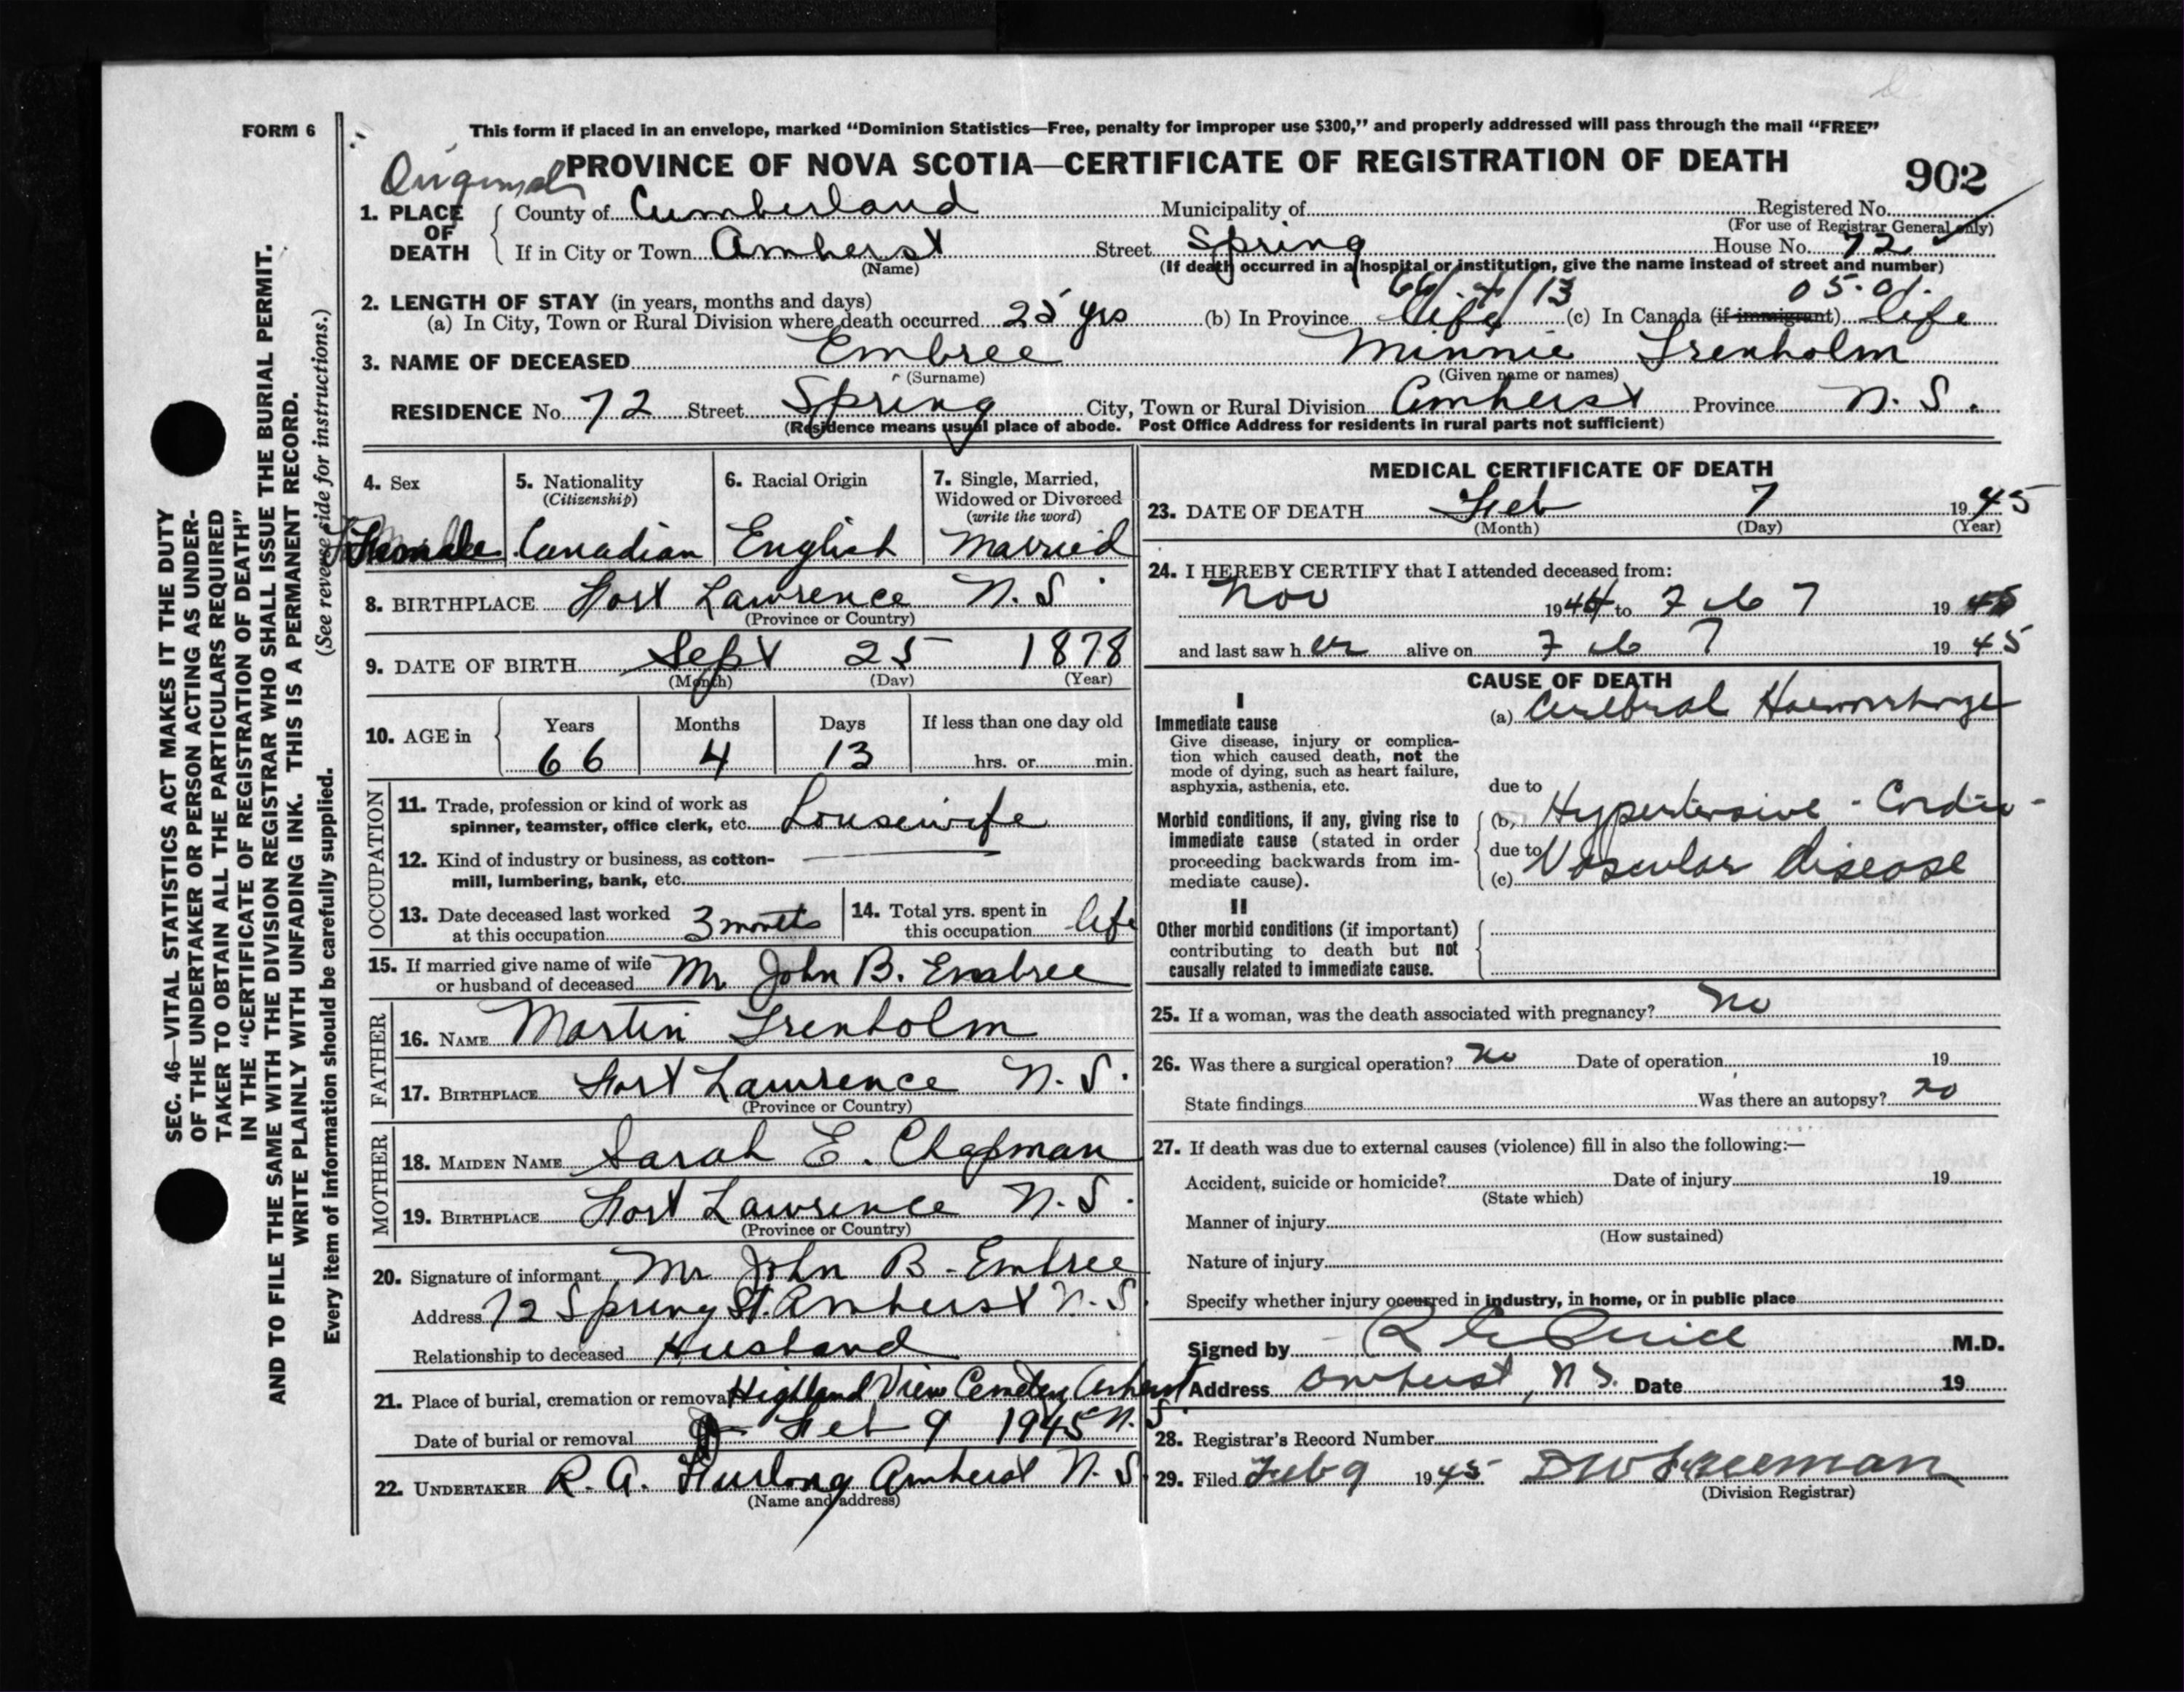 FORM 6
This form if placed in an envelope, marked "Dominion Statistics—Free, penalty for improper use $300," and properly addressed will pass through the mail "FREE"
Original
PROVINCE OF NOVA SCOTIA—CERTIFICATE OF REGISTRATION OF DEATH
902
1. PLACE OF DEATH
County of Cumberland Municipality of Registered No.
(For use of Registrar General only)
If in City or Town Amherst Street Spring House No. 72
(Name) (If death occurred in a hospital or institution, give the name instead of street and number)
66/4/13 05.01.
2. LENGTH OF STAY (in years, months and days)
(a) In City, Town or Rural Division where death occurred 25 yrs (b) In Province life (c) In Canada (if immigrant) life
3. NAME OF DECEASED Embree Minnie Trenholm
(Surname) (Given name or names)
RESIDENCE No. 72 Street Spring City, Town or Rural Division Amherst Province N. S.
(Residence means usual place of abode. Post Office Address for residents in rural parts not sufficient)
4. Sex Female
5. Nationality (Citizenship) Canadian
6. Racial Origin English
7. Single, Married, Widowed or Divorced (write the word) Married
8. BIRTHPLACE Fort Lawrence N. S.
(Province or Country)
9. DATE OF BIRTH Sept 25 1878
(Month) (Day) (Year)
10. AGE in Years Months Days If less than one day old
66 4 13 hrs. or min.
OCCUPATION
11. Trade, profession or kind of work as
spinner, teamster, office clerk, etc. Housewife
12. Kind of industry or business, as cotton-
mill, lumbering, bank, etc.
13. Date deceased last worked
at this occupation 3 months
14. Total yrs. spent in
this occupation life
15. If married give name of wife
or husband of deceased Mr John B. Embree
FATHER
16. NAME Martin Trenholm
17. BIRTHPLACE Fort Lawrence N. S.
(Province or Country)
MOTHER
18. MAIDEN NAME Sarah E. Chapman
19. BIRTHPLACE Fort Lawrence N. S.
(Province or Country)
20. Signature of informant Mr John B. Embree
Address 72 Spring St. Amherst N. S.
Relationship to deceased Husband
21. Place of burial, cremation or removal Highland View Cemetery Amherst N. S.
Date of burial or removal Feb 9 1945
22. UNDERTAKER R. A. Furlong Amherst N. S.
(Name and address)
MEDICAL CERTIFICATE OF DEATH
23. DATE OF DEATH Feb 7 1945
(Month) (Day) (Year)
24. I HEREBY CERTIFY that I attended deceased from:
Nov 1944 to Feb 7 1945
and last saw her alive on Feb 7 1945
CAUSE OF DEATH
I
Immediate cause
Give disease, injury or complica-
tion which caused death, not the
mode of dying, such as heart failure,
asphyxia, asthenia, etc.
(a) Cerebral Haemorrhage
due to
Morbid conditions, if any, giving rise to
immediate cause (stated in order
proceeding backwards from im-
mediate cause).
(b) Hypertensive - Cardio-
due to
(c) Vascular disease
II
Other morbid conditions (if important)
contributing to death but not
causally related to immediate cause.
25. If a woman, was the death associated with pregnancy? No
26. Was there a surgical operation? No Date of operation 19
State findings Was there an autopsy? no
27. If death was due to external causes (violence) fill in also the following:—
Accident, suicide or homicide? Date of injury 19
(State which)
Manner of injury
(How sustained)
Nature of injury
Specify whether injury occurred in industry, in home, or in public place
Signed by M.D.
Address Amherst, N.S. Date 19
28. Registrar's Record Number
29. Filed Feb 9 1945 D W Freeman
(Division Registrar)
SEC. 46—VITAL STATISTICS ACT MAKES IT THE DUTY
OF THE UNDERTAKER OR PERSON ACTING AS UNDER-
TAKER TO OBTAIN ALL THE PARTICULARS REQUIRED
IN THE "CERTIFICATE OF REGISTRATION OF DEATH"
AND TO FILE THE SAME WITH THE DIVISION REGISTRAR WHO SHALL ISSUE THE BURIAL PERMIT.
WRITE PLAINLY WITH UNFADING INK. THIS IS A PERMANENT RECORD.
Every item of information should be carefully supplied. (See reverse side for instructions.)